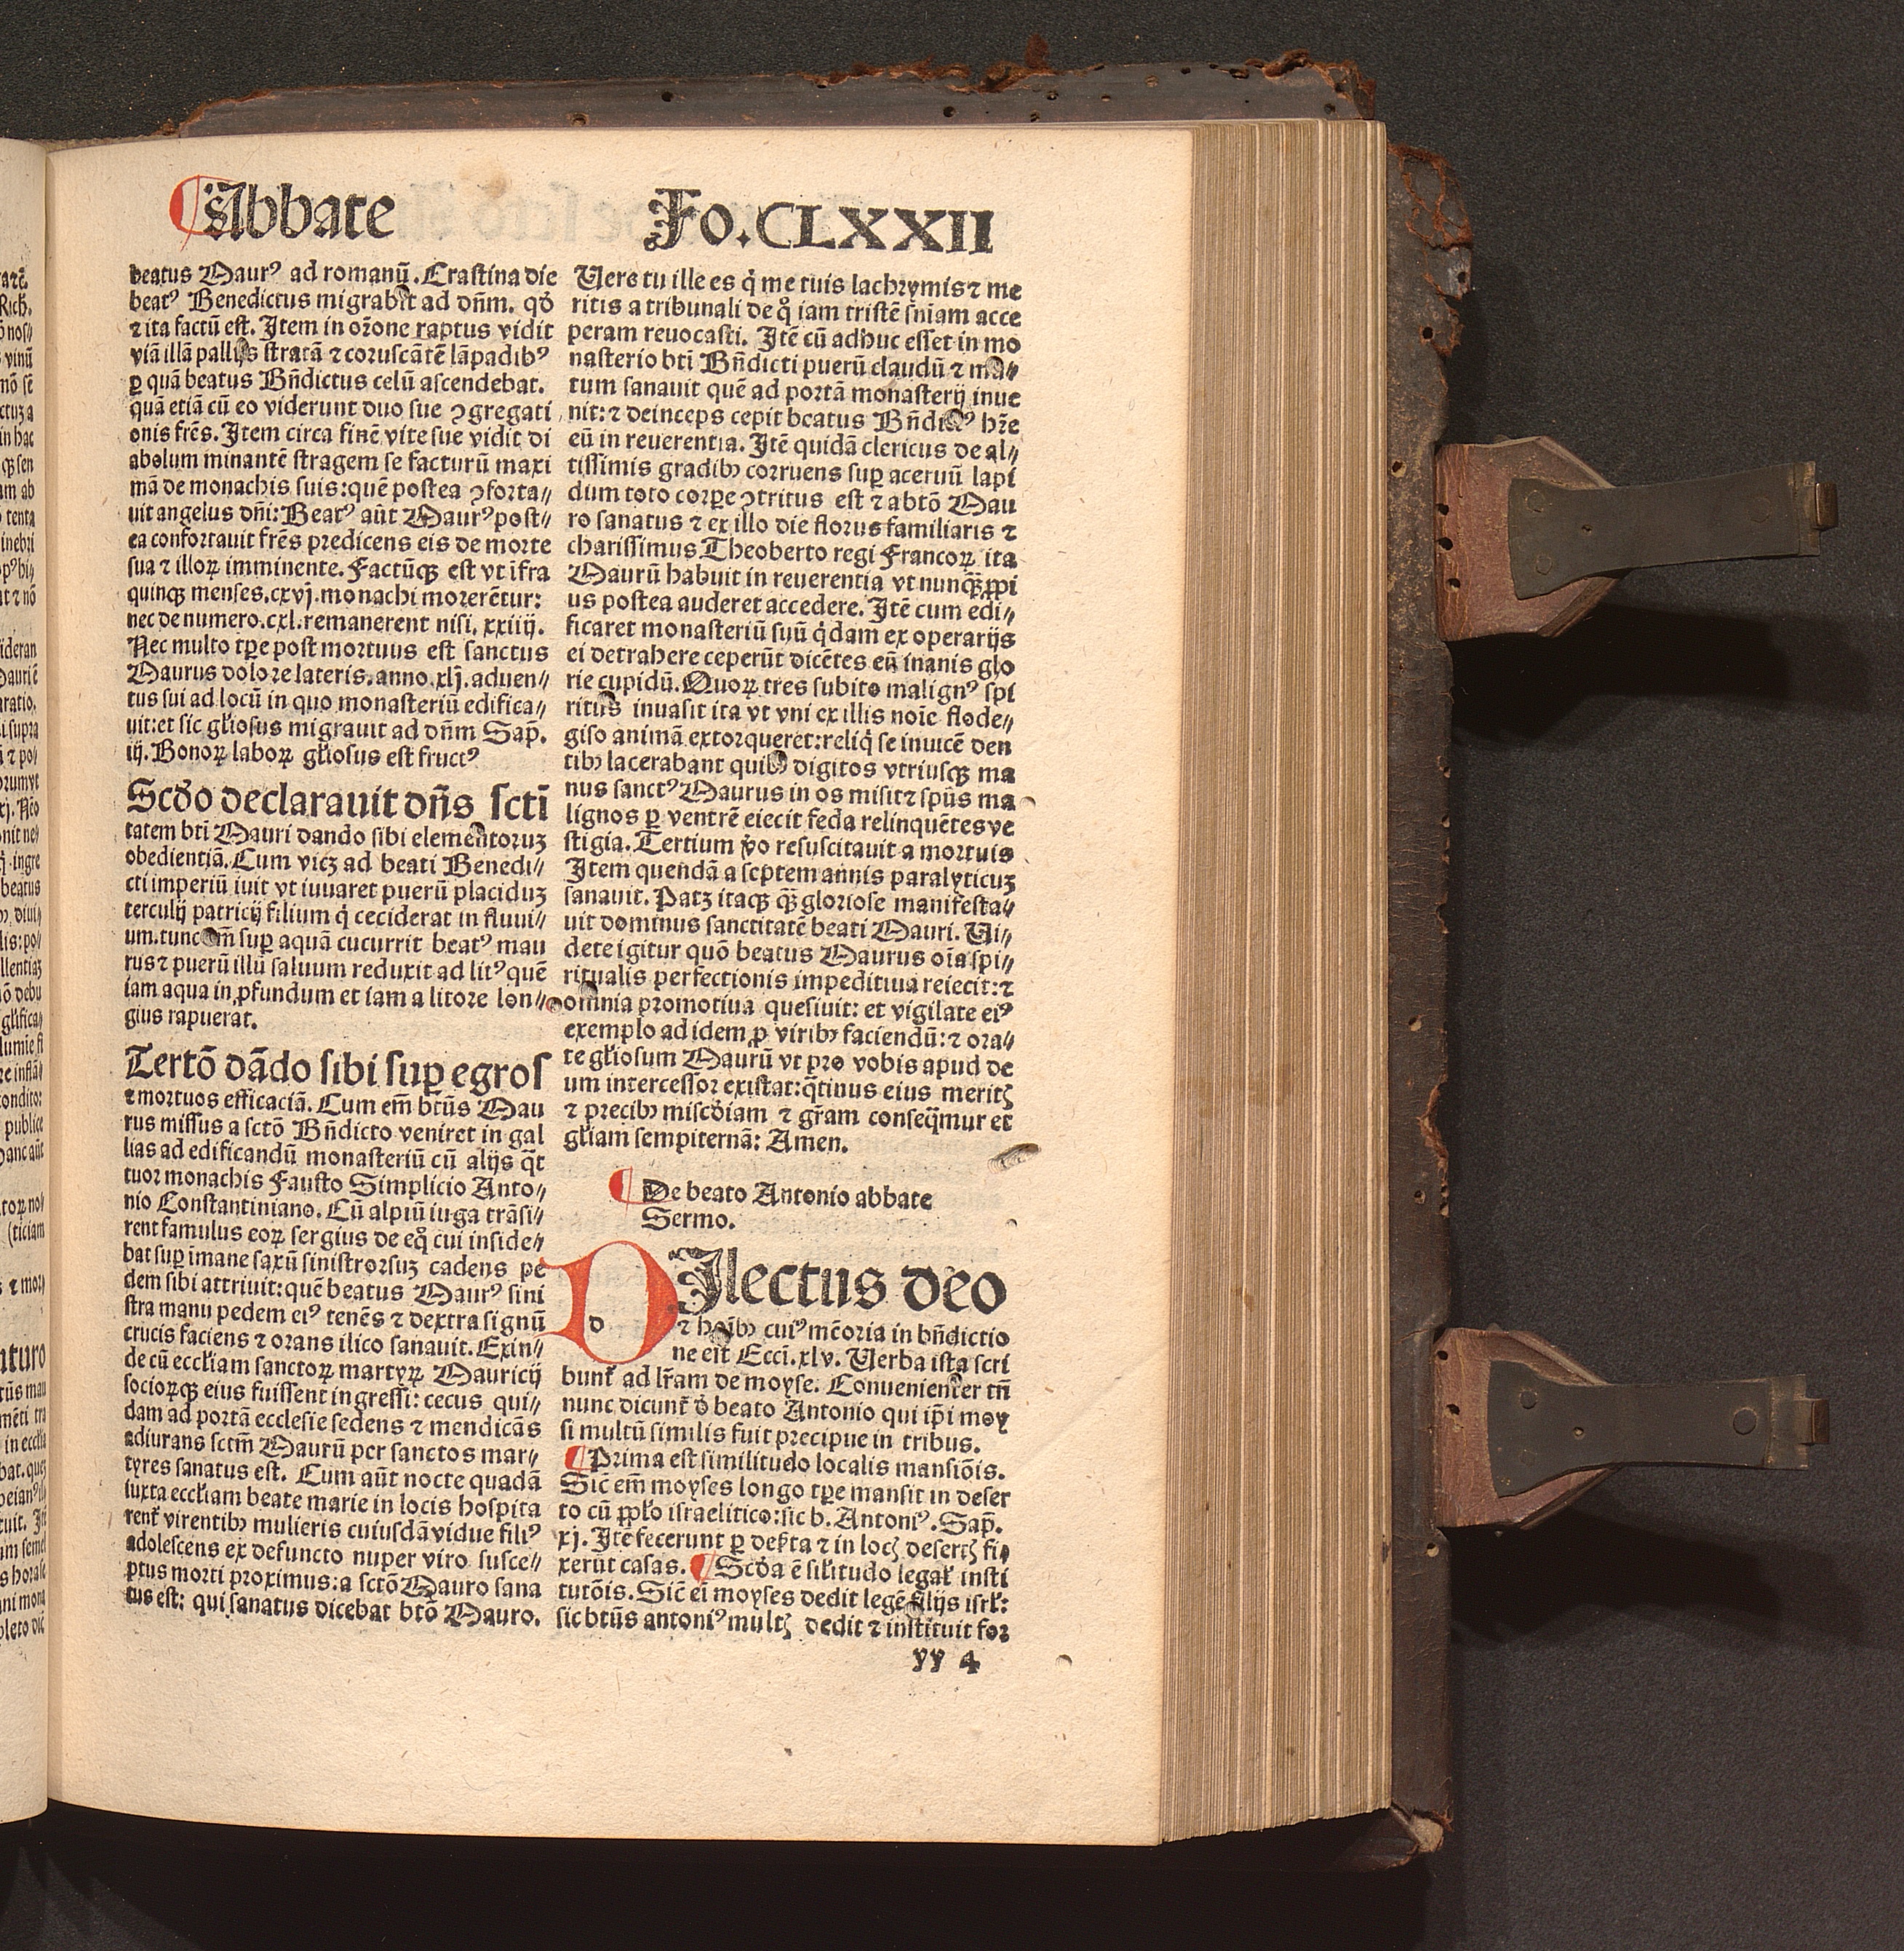 Abbate Fo. CLXXII
beatus Maurꝰ ad romanū. Crastina die
beatꝰ Benedictus migrabit ad dn̄m. qđ
⁊ ita factū est. Item in or̄one raptus vidit
viā illā pallijs stratā ⁊ coruscātē lāpadibꝰ
ꝑ quā beatus Bn̄dictus celū ascendebat.
quā etiā cū eo viderunt duo sue ꝯgregati
onis fr̄es. Item circa finē vite sue vidit di
abolum minantē stragem se facturū maxi
mā de monachis suis: quē postea ꝯforta⸗
uit angelus dn̄i: Beatꝰ aūt Maurꝰ post⸗
ea confortauit fr̄es predicens eis de morte
sua ⁊ illoꝝ imminente. Factūqꝫ est vt īfra
quinqꝫ menses. cxvj. monachi morerētur:
nec de numero. cxl. remanerent nisi. xxiiij.
Nec multo tꝑe post mortuus est sanctus
Maurus dolore lateris. anno. xlj. aduen⸗
tus sui ad locū in quo monasteriū edifica⸗
uit: et sic gl̄iosus migrauit ad dn̄m Sap̄.
iij. Bonoꝝ laboꝝ gl̄iosus est fructꝰ
Scđo declarauit dn̄s sctī
tatem btī Mauri dando sibi elementoruꝫ
obedientiā. Cum vicꝫ ad beati Benedi⸗
cti imperiū iuit vt iuuaret puerū placiduꝫ
terculij patricij filium q̇ ceciderat in fluui⸗
um. tunc em̄ suꝑ aquā cucurrit beatꝰ mau
rus ⁊ puerū illū saluum reduxit ad litꝰ quē
iam aqua in ꝓfundum et iam a litore lon⸗
gius rapuerat.
Tertō dādo sibi suꝑ egros
⁊ mortuos efficaciā. Cum em̄ btūs Mau
rus missus a sctō Bn̄dicto veniret in gal
lias ad edificandū monasteriū cū alijs q̄t
tuor monachis Fausto Simplicio Anto⸗
nio Constantiniano. Cū alpiū iuga trāsi⸗
rent famulus eoꝝ sergius de eq̊ cui inside⸗
bat suꝑ īmane saxū sinistrorsuꝫ cadens pe
dem sibi attriuit: quē beatus Maurꝰ sini
stra manu pedem eiꝰ tenēs ⁊ dextra signū
crucis faciens ⁊ orans ilico sanauit. Exin⸗
de cū eccl̄iam sanctoꝝ martyꝝ Mauricij
socioꝝqꝫ eius fuissent ingressi: cecus qui⸗
dam ad portā ecclesie sedens ⁊ mendicās
adiurans sctm̄ Maurū per sanctos mar⸗
tyres sanatus est. Cum aūt nocte quadā
iuxta eccl̄iam beate marie in locis hospita
rent̄ virentibꝫ mulieris cuiusdā vidue filiꝰ
adolescens ex defuncto nuper viro susce⸗
ptus morti proximus: a sctō Mauro sana
tus est: qui sanatus dicebat btō Mauro.
Uere tu ille es q̇ me tuis lachrymis ⁊ me
ritis a tribunali de q̊ iam tristē sn̄iam acce
peram reuocasti. Itē cū adhuc esset in mo
nasterio btī Bn̄dicti puerū claudū ⁊ mu⸗
tum sanauit quē ad portā monasterij inue
nit: ⁊ deinceps cepit beatus Bn̄dictꝰ hr̄e
eū in reuerentia. Itē quidā clericus de al⸗
tissimis gradibꝫ corruens suꝑ aceruū lapi
dum toto corꝑe ꝯtritus est ⁊ a btō Mau
ro sanatus ⁊ ex illo die florus familiaris ⁊
charissimus Theoberto regi Francoꝝ ita
Maurū habuit in reuerentia vt nunqꝫ̄ ꝓpi
us postea auderet accedere. Itē cum edi⸗
ficaret monasteriū suū q̇dam ex operarijs
ei detrahere ceperūt dicētes eū inanis glo
rie cupidū. Quoꝝ tres subito malignꝰ spi
ritus inuasit ita vt vni ex illis noīe flode⸗
giso animā extorqueret: reliq̇ se inuicē den
tibꝫ lacerabant quibꝫ digitos vtriusqꝫ ma
nus sanctꝰ Maurus in os misit ⁊ spūs ma
lignos ꝑ ventrē eiecit feda relinquētes ve
stigia. Tertium v̊o resuscitauit a mortuis
Item quendā a septem annis paralyticuꝫ
sanauit. Patꝫ itaqꝫ qꝫ̄ gloriose manifesta⸗
uit dominus sanctitatē beati Mauri. Ui⸗
dete igitur quō beatus Maurus oīa spi⸗
ritualis perfectionis impeditiua reiecit: ⁊
omnia promotiua quesiuit: et vigilate eiꝰ
exemplo ad idem ꝓ viribꝫ faciendū: ⁊ ora⸗
te gl̄iosum Maurū vt pro vobis apud de
um intercessor existat: q̄tinus eius meritꝭ
⁊ precibꝫ misc̄diam ⁊ gr̄am conseq̄mur et
gl̄iam sempiternā: Amen.
De beato Antonio abbate
Sermo.
DIlectus deo
⁊ hoībꝫ cuiꝰ mēoria in bn̄dictio
ne est Ecci. xlv. Uerba ista scri
bunt̄ ad lr̄am de moyse. Conuenienter tn̄
nunc dicunt̄ đ beato Antonio qui ip̄i moy
si multū similis fuit precipue in tribus.
Prima est similitudo localis mansiōis.
Sic̄ em̄ moyses longo tꝑe mansit in deser
to cū ppl̄o israelitico: sic b. Antoniꝰ. Sap̄.
xj. Itē fecerunt ꝑ deẜta ⁊ in locꝭ desertꝭ fi⸗
xerūt casas. Scđa ē sil̄itudo legal̄ insti
tutōis. Sic̄ ei̅ moyses dedit legē filijs isrl̄:
sic btūs antoniꝰ multꝭ dedit ⁊ instituit for
yy 4